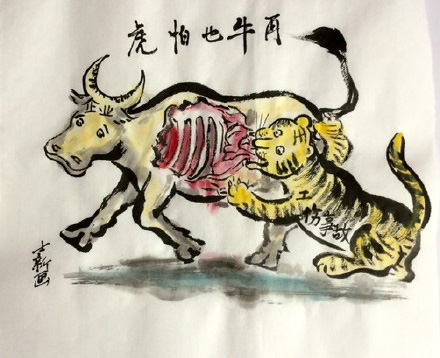 再牛也怕虎
企业
工伤事故
士新画